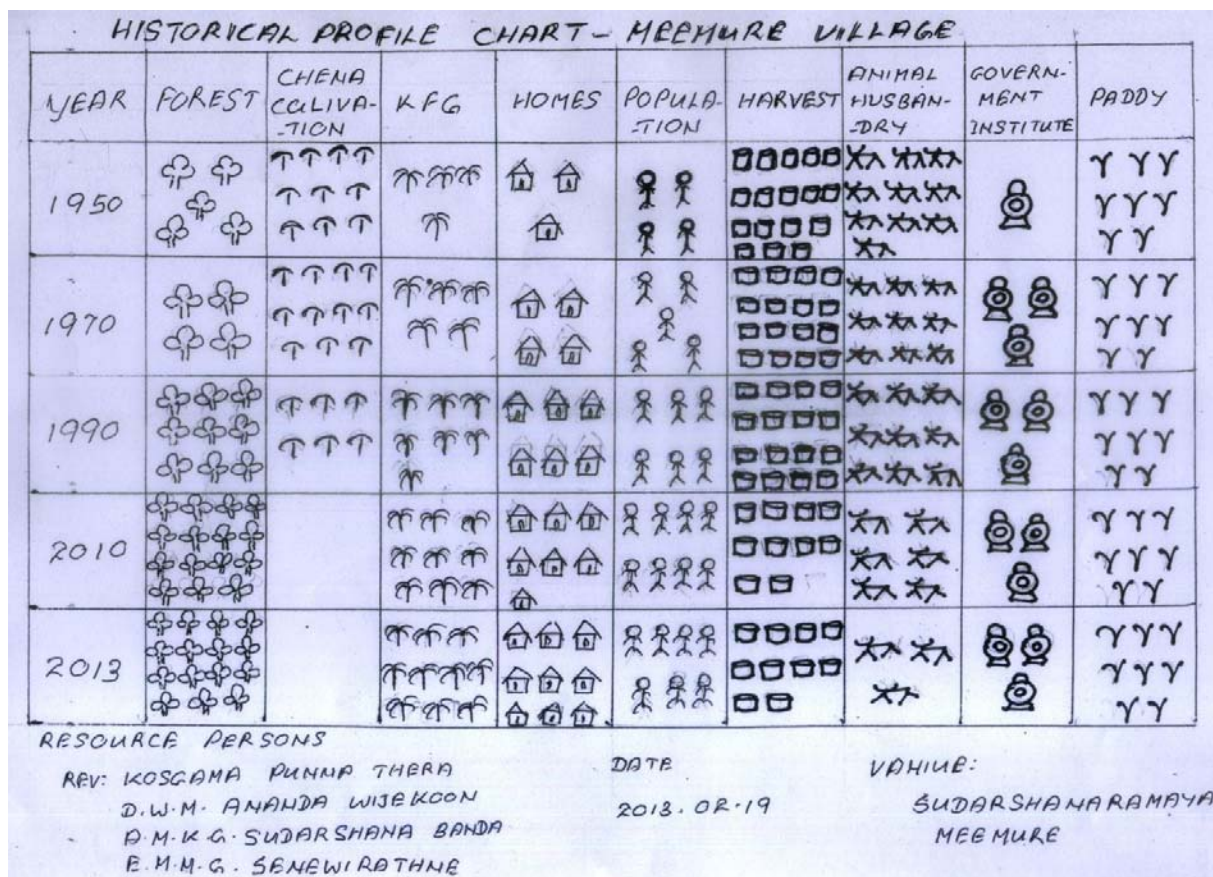 HISTORICAL PROFILE CHART - MEEMURE VILLAGE
YEAR FOREST CHENA CULIVA- -TION KFG HOMES POPULA- -TION HARVEST ANIMAL HUSBAN- -DRY GOVERN- MENT INSTITUTE PADDY
1950
1970
1990
2010
2013
RESOURCE PERSONS
REV: KOSGAMA PUNNA THERA
D.W.M. ANANDA WIJEKOON
A.M.K.G. SUDARSHANA BANDA
E.M.M.G. SENEWIRATHNE
DATE
2013.02.19
VAHIUE:
SUDARSHANARAMAYA
MEEMURE